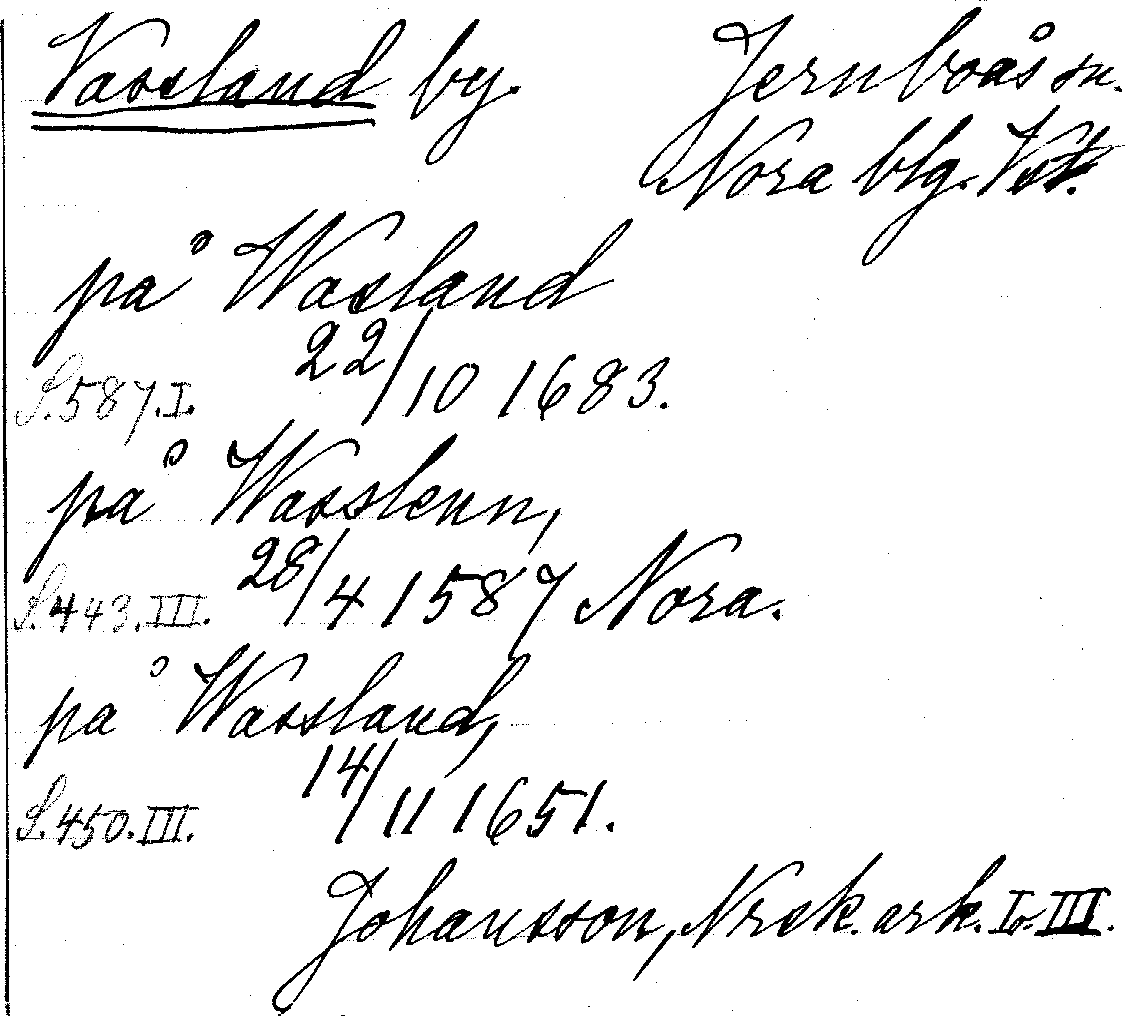 Vassland by. Jernboås sn.
Nora blg. Vstm.
på Wasland
22/10 1683.
S. 587. I.
på Wasslenn,
28/4 1587 Nora.
S. 443. III.
på Wassland,
14/11 1651.
S. 450. III.
Johansson, Nrsk. ark. I. III.